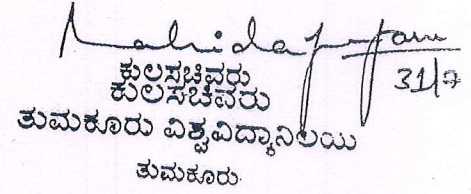 31/7
ಕುಲಸಚಿವರು
ಕುಲಸಚಿವರು
ತುಮಕೂರು ವಿಶ್ವವಿದ್ಯಾನಿಲಯ
ತುಮಕೂರು.